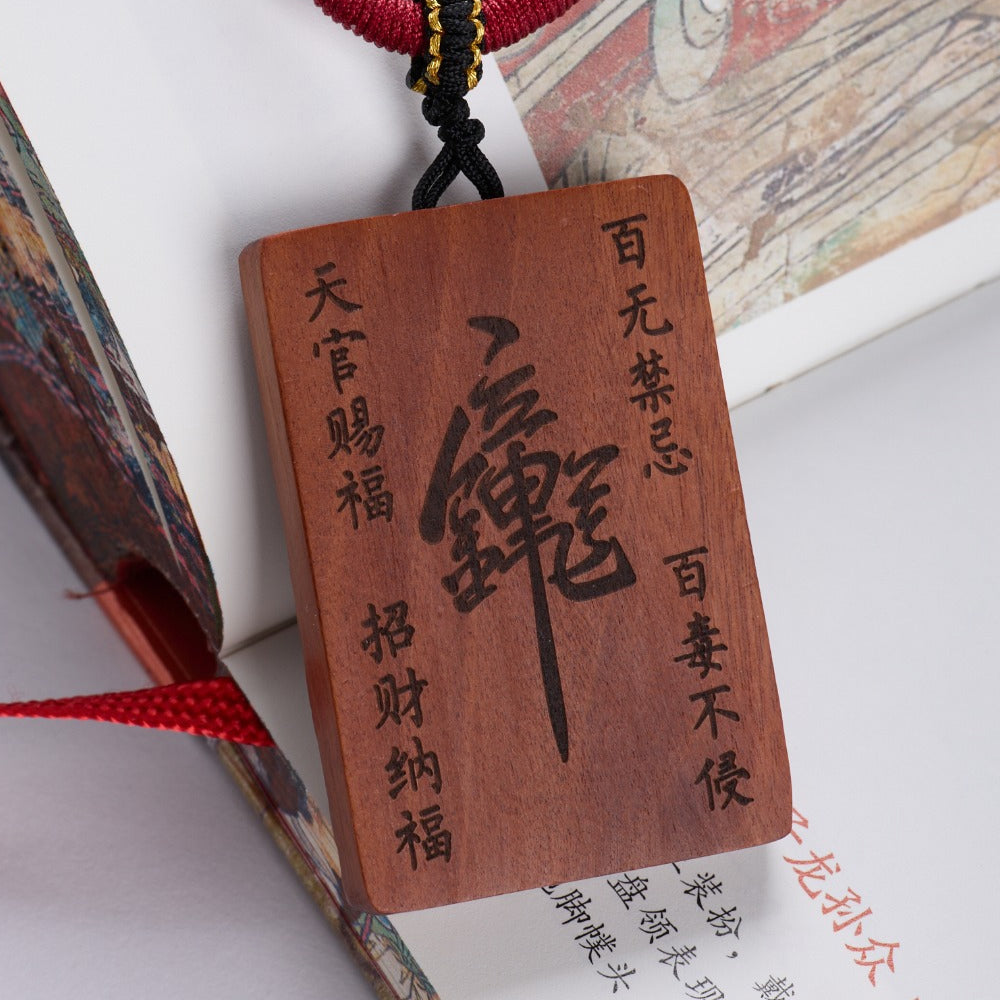 百无禁忌
百毒不侵
天官赐福
招财纳福
龙孙众
装扮，戴
盘领表现
脚幞头